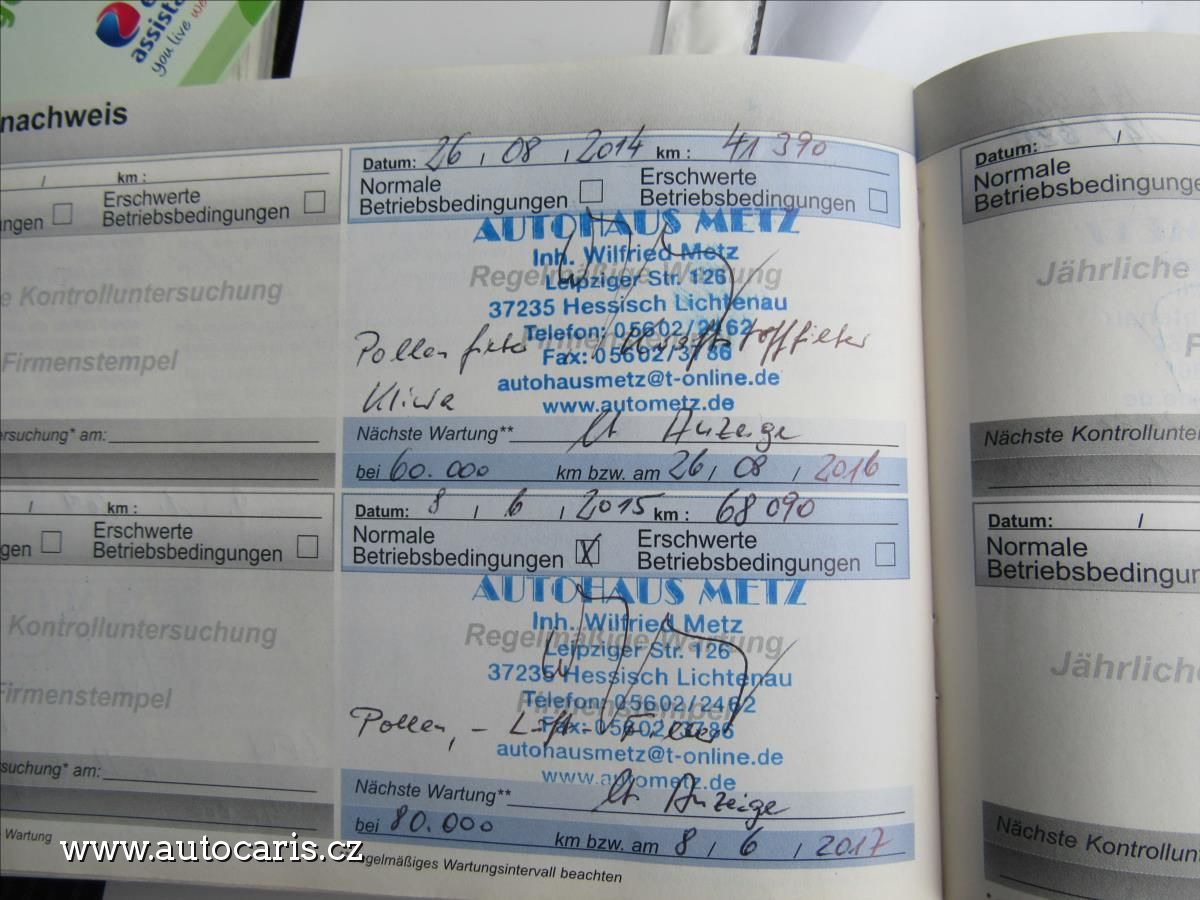 assist
you live
nachweis
/ km :
ungen Erschwerte
Betriebsbedingungen
e Kontrolluntersuchung
Firmenstempel
ersuchung* am:
/ km :
gen Erschwerte
Betriebsbedingungen
Kontrolluntersuchung
Firmenstempel
suchung* am:
Wartung
Datum: 26 / 08 / 2014 km : 41 390
Normale
Betriebsbedingungen
Erschwerte
Betriebsbedingungen
AUTOHAUS METZ
Inh. Wilfried Metz
Regelmäßige Wartung
Leipziger Str. 126
37235 Hessisch Lichtenau
Telefon: 05602/2462
Pollenfilter Kraftstofffilter
Fax: 05602/3786
autohausmetz@t-online.de
Klima
www.autometz.de
Nächste Wartung** lt Anzeige
bei 60.000 km bzw. am 26 / 08 / 2016
Datum: 8 / 6 / 2015 km : 68 090
Normale
Betriebsbedingungen X
Erschwerte
Betriebsbedingungen
AUTOHAUS METZ
Inh. Wilfried Metz
Regelmäßige Wartung
Leipziger Str. 126
37235 Hessisch Lichtenau
Telefon: 05602/2462
Firmenstempel
Pollen, - Luft -
Fax: 05602/3786
autohausmetz@t-online.de
www.autometz.de
Nächste Wartung** lt Anzeige
bei 80.000 km bzw. am 8 / 6 / 2017
Regelmäßiges Wartungsintervall beachten
Datum: /
Normale
Betriebsbedingunge
Jährliche
Nächste Kontrollunter
Datum: /
Normale
Betriebsbedingun
Jährliche
Nächste Kontrollunt
www.autocaris.cz